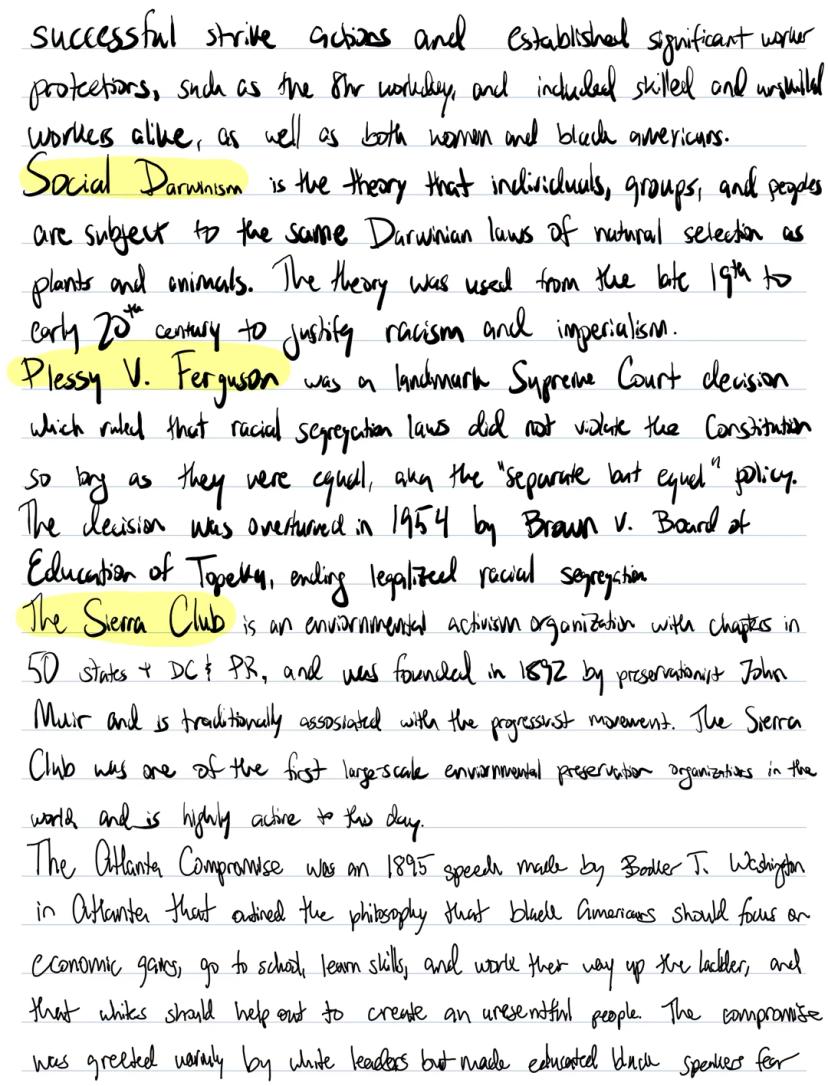 successful strike actions and established significant worker
protections, such as the 8hr workday, and included skilled and unskilled
workers alike, as well as both women and black americans.
Social Darwinism is the theory that individuals, groups, and peoples
are subject to the same Darwinian laws of natural selection as
plants and animals. The theory was used from the late 19th to
early 20th century to justify racism and imperialism.
Plessy V. Ferguson was a landmark Supreme Court decision
which ruled that racial segregation laws did not violate the Constitution
so long as they were equal, aka the "separate but equal" policy.
The decision was overturned in 1954 by Brown v. Board of
Education of Topeka, ending legalized racial segregation
The Sierra Club is an enviornmental activism organization with chapters in
50 states + DC & PR, and was founded in 1892 by preservationist John
Muir and is traditionally assosiated with the progressivist movement. The Sierra
Club was one of the first large-scale enviornmental preservation organizations in the
world and is highly active to this day.
The Atlanta Compromise was an 1895 speech made by Booker T. Washington
in Atlanta that outlined the philosophy that black Americans should focus on
economic gains, go to school, learn skills, and work their way up the ladder, and
that whites should help out to create an unresentful people. The compromise
was greeted warmly by white leaders but made educated black speakers fear